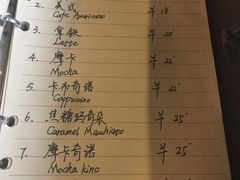 2. 美式 ¥ 18
Cafe Americano
3. 拿铁 ¥ 20
Latte
4. 摩卡 ¥ 22
Mocha
5. 卡布奇诺 ¥ 22
Cappuccino
6. 焦糖玛奇朵 ¥ 25
Caramel Macchiato
7. 摩卡奇诺 ¥ 25
Mocha kino